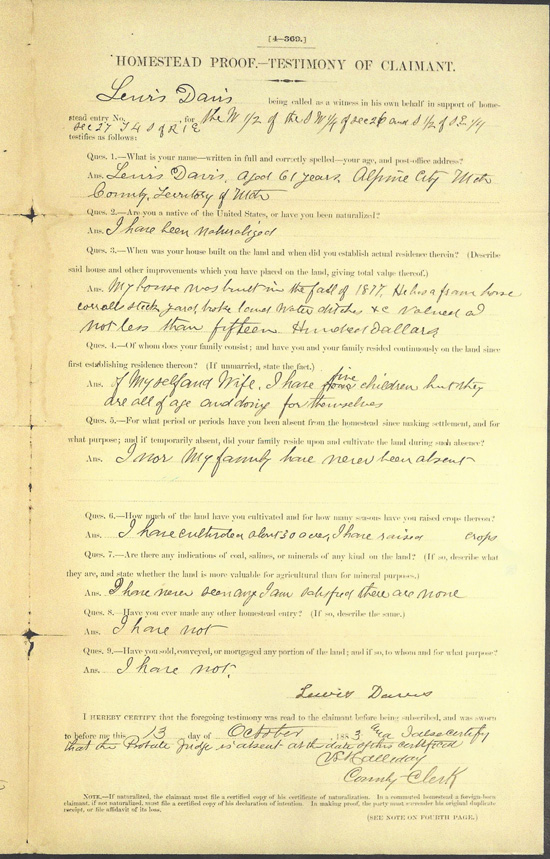 [4—369.]
HOMESTEAD PROOF.—TESTIMONY OF CLAIMANT.
Lewis Davis being called as a witness in his own behalf in support of home-
stead entry No. for the W 1/2 of the S W 1/4 of sec 26 and S 1/2 of S E 1/4
sec 27 T 4 S of R 1 E
testifies as follows:
Ques. 1.—What is your name—written in full and correctly spelled—your age, and post-office address?
Ans. Lewis Davis, aged 61 years, Alpine City Utah
County, Territory of Utah
Ques. 2.—Are you a native of the United States, or have you been naturalized?
Ans. I have been naturalized
Ques. 3.—When was your house built on the land and when did you establish actual residence therein? (Describe
said house and other improvements which you have placed on the land, giving total value thereof.)
Ans. My house was built in the fall of 1877, a frame house
corralls stock yard broke land water ditches &c valued at
not less than fifteen Hundred Dollars
Ques. 4.—Of whom does your family consist; and have you and your family resided continuously on the land since
first establishing residence therein? (If unmarried, state the fact.)
Ans. of Myself and Wife, I have five children but they
are all of age and doing for themselves
Ques. 5.—For what period or periods have you been absent from the homestead since making settlement, and for
what purpose; and if temporarily absent, did your family reside upon and cultivate the land during such absence?
Ans. I nor My family have never been absent
Ques. 6.—How much of the land have you cultivated and for how many seasons have you raised crops thereon?
Ans. I have cultivated about 30 acres, I have raised crops
Ques. 7.—Are there any indications of coal, salines, or minerals of any kind on the land? (If so, describe what
they are, and state whether the land is more valuable for agricultural than for mineral purposes.)
Ans. I have never seen any I am satisfied there are none
Ques. 8.—Have you ever made any other homestead entry? (If so, describe the same.)
Ans. I have not
Ques. 9.—Have you sold, conveyed, or mortgaged any portion of the land; and if so, to whom and for what purpose?
Ans. I have not.
Lewis Davis
I HEREBY CERTIFY that the foregoing testimony was read to the claimant before being subscribed, and was sworn
to before me this 13 day of October, 1883 I also certify
that the Probate Judge is absent at the date of this certificate
V L Halliday
County Clerk
NOTE.—If naturalized, the claimant must file a certified copy of his certificate of naturalization. In a commuted homestead a foreign-born
claimant, if not naturalized, must file a certified copy of his declaration of intention. In making proof, the party must surrender his original duplicate
receipt, or file affidavit of its loss.
(SEE NOTE ON FOURTH PAGE.)